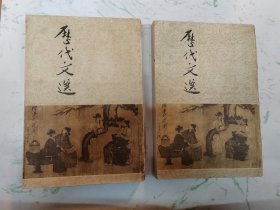 歷代文選
歷代文選